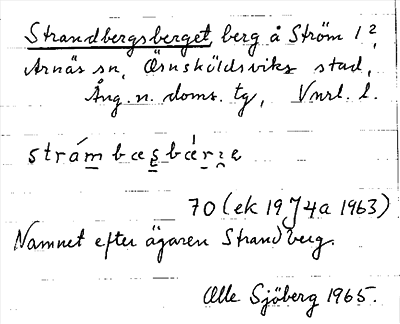 Strandbergsberget, berg å Ström 1²
Arnäs sn, Örnsköldsviks stad,
Ång. n. doms. tg, Vnrl. l.
70 (ek 19 J4a 1963)
Namnet efter ägaren Strandberg.
Olle Sjöberg 1965.